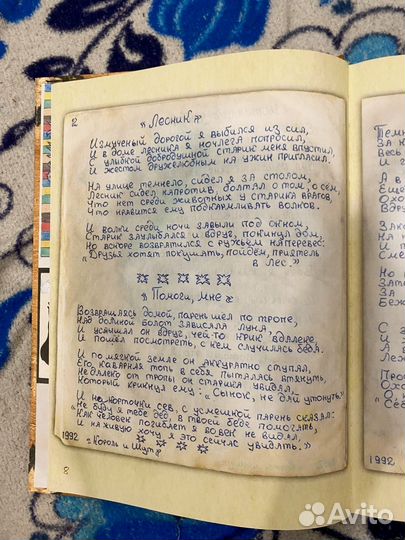 2
« Лесник »
Измученый дорогой я выбился из сил,
И в доме лесника я ночлега попросил,
С улыбкой добродушной старик меня впустил
И жестом дружелюбным на ужин пригласил.
На улице темнело, сидел я за столом,
Лесник сидел напротив, болтал о том, о сём,
Что нет среди животных у старика врагов,
Что нравится ему подкармливать волков.
И волки среди ночи завыли под окном,
Старик заулыбался и вдруг, покинул дом,
Но вскоре возвратился с ружьём наперевес:
"Друзья хотят покушать, пойдём, приятель
в лес."
« Помоги, мне »
Возвращаясь домой, парень шёл по тропе,
Над долиной болот зависала луна,
И услышал он вдруг, чей-то крик вдалеке,
И пошёл посмотреть, с кем случилась беда.
И по мягкой земле он аккуратно ступал,
Его, коварная топь в себя пыталась втянуть,
Недалеко от тропы он старика увидал,
Который крикнул ему: "Сынок, не дай утонуть"
И на корточки сев, с усмешкой парень сказал:
"Не буду я тебе дед, в твоей беде помогать,
Как человек погибает я вовек не видал,
И на живую хочу я это сейчас увидать."
1992
"Король и Шут"
8
Темн
За к
Весь
И
А в
Еще
Охо
В
Зако
И
Но
Зат
За
Беж
Про
Ох
О
"Се
1992
Avito